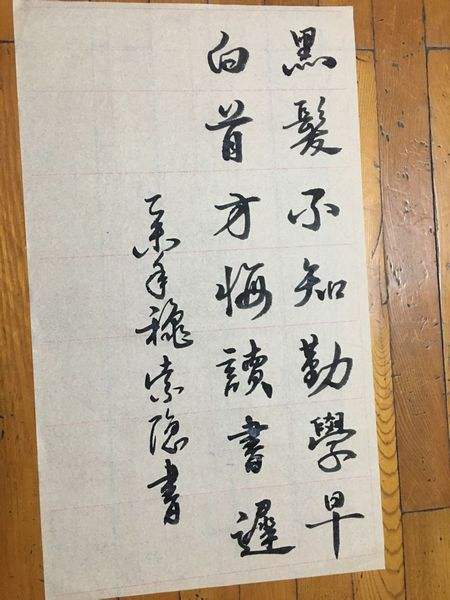 黑髮不知勤學早
白首方悔讀書遲
乙未年穐索隐書